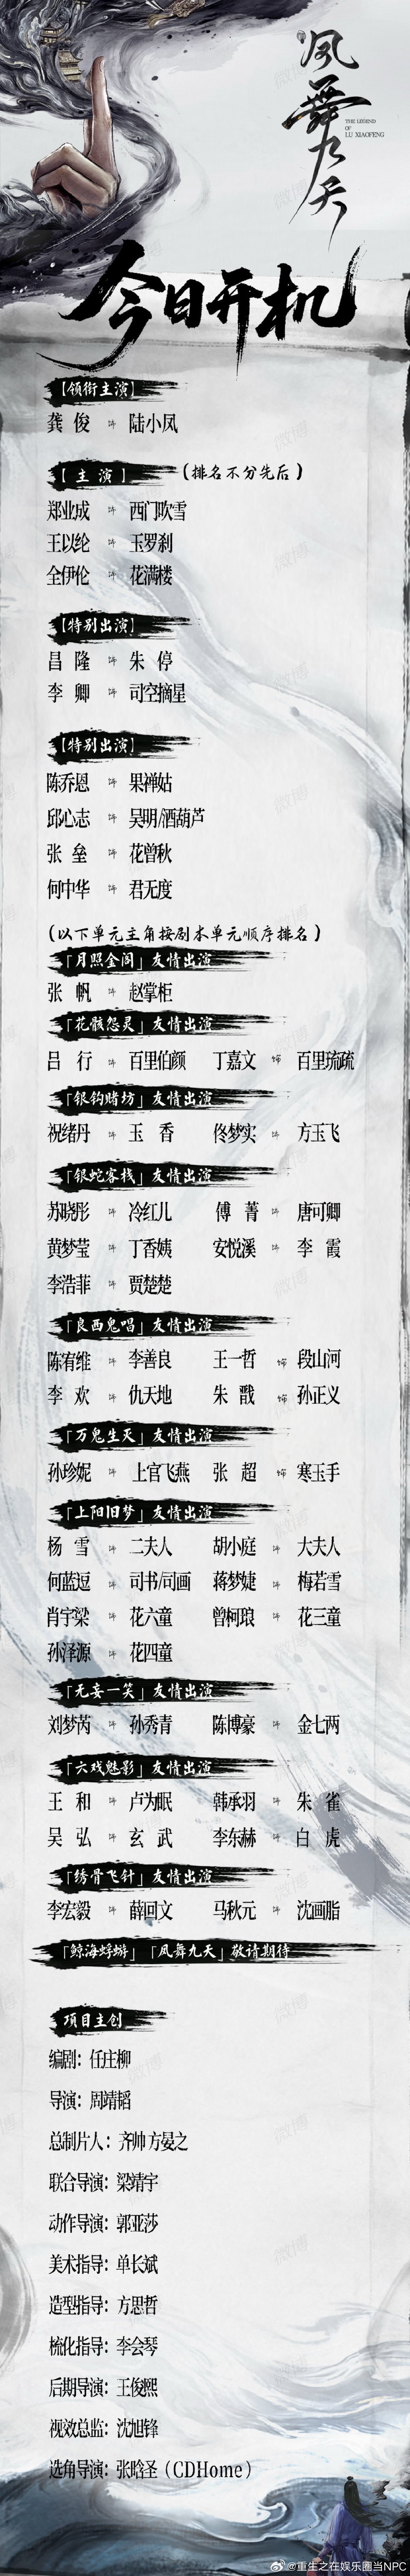 凤舞九天
THE LEGEND
OF
LU XIAOFENG
今日开机
【领衔主演】
龚俊 饰 陆小凤
【主演】(排名不分先后)
郑业成 饰 西门吹雪
王以纶 饰 玉罗刹
全伊伦 饰 花满楼
【特别出演】
昌隆 饰 朱停
李卿 饰 司空摘星
【特别出演】
陈乔恩 饰 果禅姑
邱心志 饰 吴明/酒葫芦
张垒 饰 花曾秋
何中华 饰 君无度
(以下单元主角按剧本单元顺序排名)
「月照金阁」友情出演
张帆 饰 赵掌柜
「花骸怨灵」友情出演
吕行 饰 百里伯颜 丁嘉文 饰 百里琉疏
「银钩赌坊」友情出演
祝绪丹 饰 玉香 佟梦实 饰 方玉飞
「银蛇客栈」友情出演
苏晓彤 饰 冷红儿 傅菁 饰 唐可卿
黄梦莹 饰 丁香姨 安悦溪 饰 李霞
李浩菲 饰 贾楚楚
「良西鬼唱」友情出演
陈宥维 饰 李善良 王一哲 饰 段山河
李欢 饰 仇天地 朱戬 饰 孙正义
「万鬼生灭」友情出演
孙珍妮 饰 上官飞燕 张超 饰 寒玉手
「上阳旧梦」友情出演
杨雪 饰 二夫人 胡小庭 饰 大夫人
何蓝逗 饰 司书/司画 蒋梦婕 饰 梅若雪
肖宇梁 饰 花六童 曾柯琅 饰 花三童
孙泽源 饰 花四童
「无妄一笑」友情出演
刘梦芮 饰 孙秀青 陈博豪 饰 金七两
「六戏魅影」友情出演
王和 饰 卢为眠 韩承羽 饰 朱雀
吴弘 饰 玄武 李东赫 饰 白虎
「绣骨飞针」友情出演
李宏毅 饰 薛回文 马秋元 饰 沈画脂
「鲸海蜉蝣」「凤舞九天」敬请期待
项目主创
编剧：任庄柳
导演：周靖韬
总制片人：齐帅 方晏之
联合导演：梁靖宇
动作导演：郭亚莎
美术指导：单长斌
造型指导：方思哲
梳化指导：李会琴
后期导演：王俊熙
视效总监：沈旭锋
选角导演：张晗圣（CDHome）
@重生之在娱乐圈当NPC